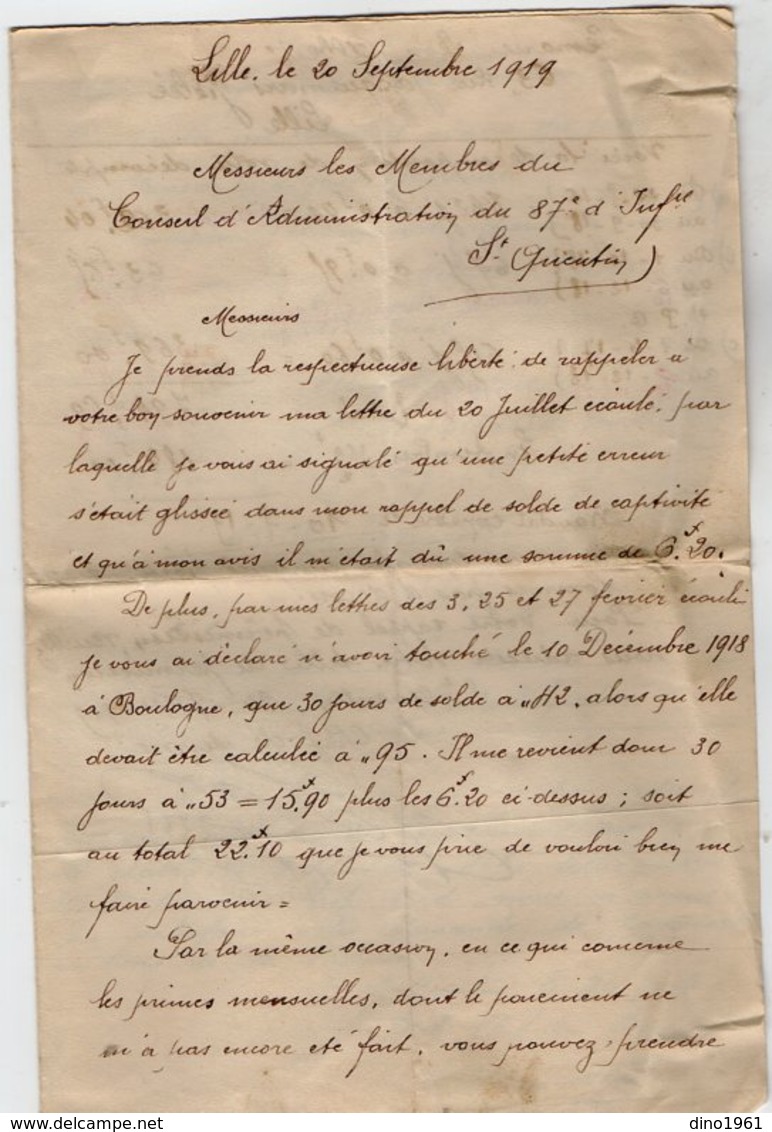 Lille, le 20 Septembre 1919
Messieurs les Membres du
Conseil d'Administration du 87e d'Infie
St. Quentin)
Messieurs
Je prends la respectueuse liberté de rappeler à
votre bon souvenir ma lettre du 20 Juillet écoulé, par
laquelle je vous ai signalé qu'une petite erreur
s'était glissée dans mon rappel de solde de captivité
et qu'à mon avis il m'était dû une somme de 6f.20.
De plus, par mes lettres des 3, 25 et 27 février écoulé
je vous ai déclaré n'avoir touché le 10 Décembre 1918
à Boulogne, que 30 jours de solde à "42, alors qu'elle
devait être calculée à "95. Il me revient donc 30
jours à "53 = 15f.90 plus les 6f.20 ci-dessus; soit
au total 22f.10 que je vous prie de vouloir bien me
faire parvenir =
Par la même occasion, en ce qui concerne
les primes mensuelles, dont le paiement ne
m'a pas encore été fait, vous pouvez prendre
dino1961